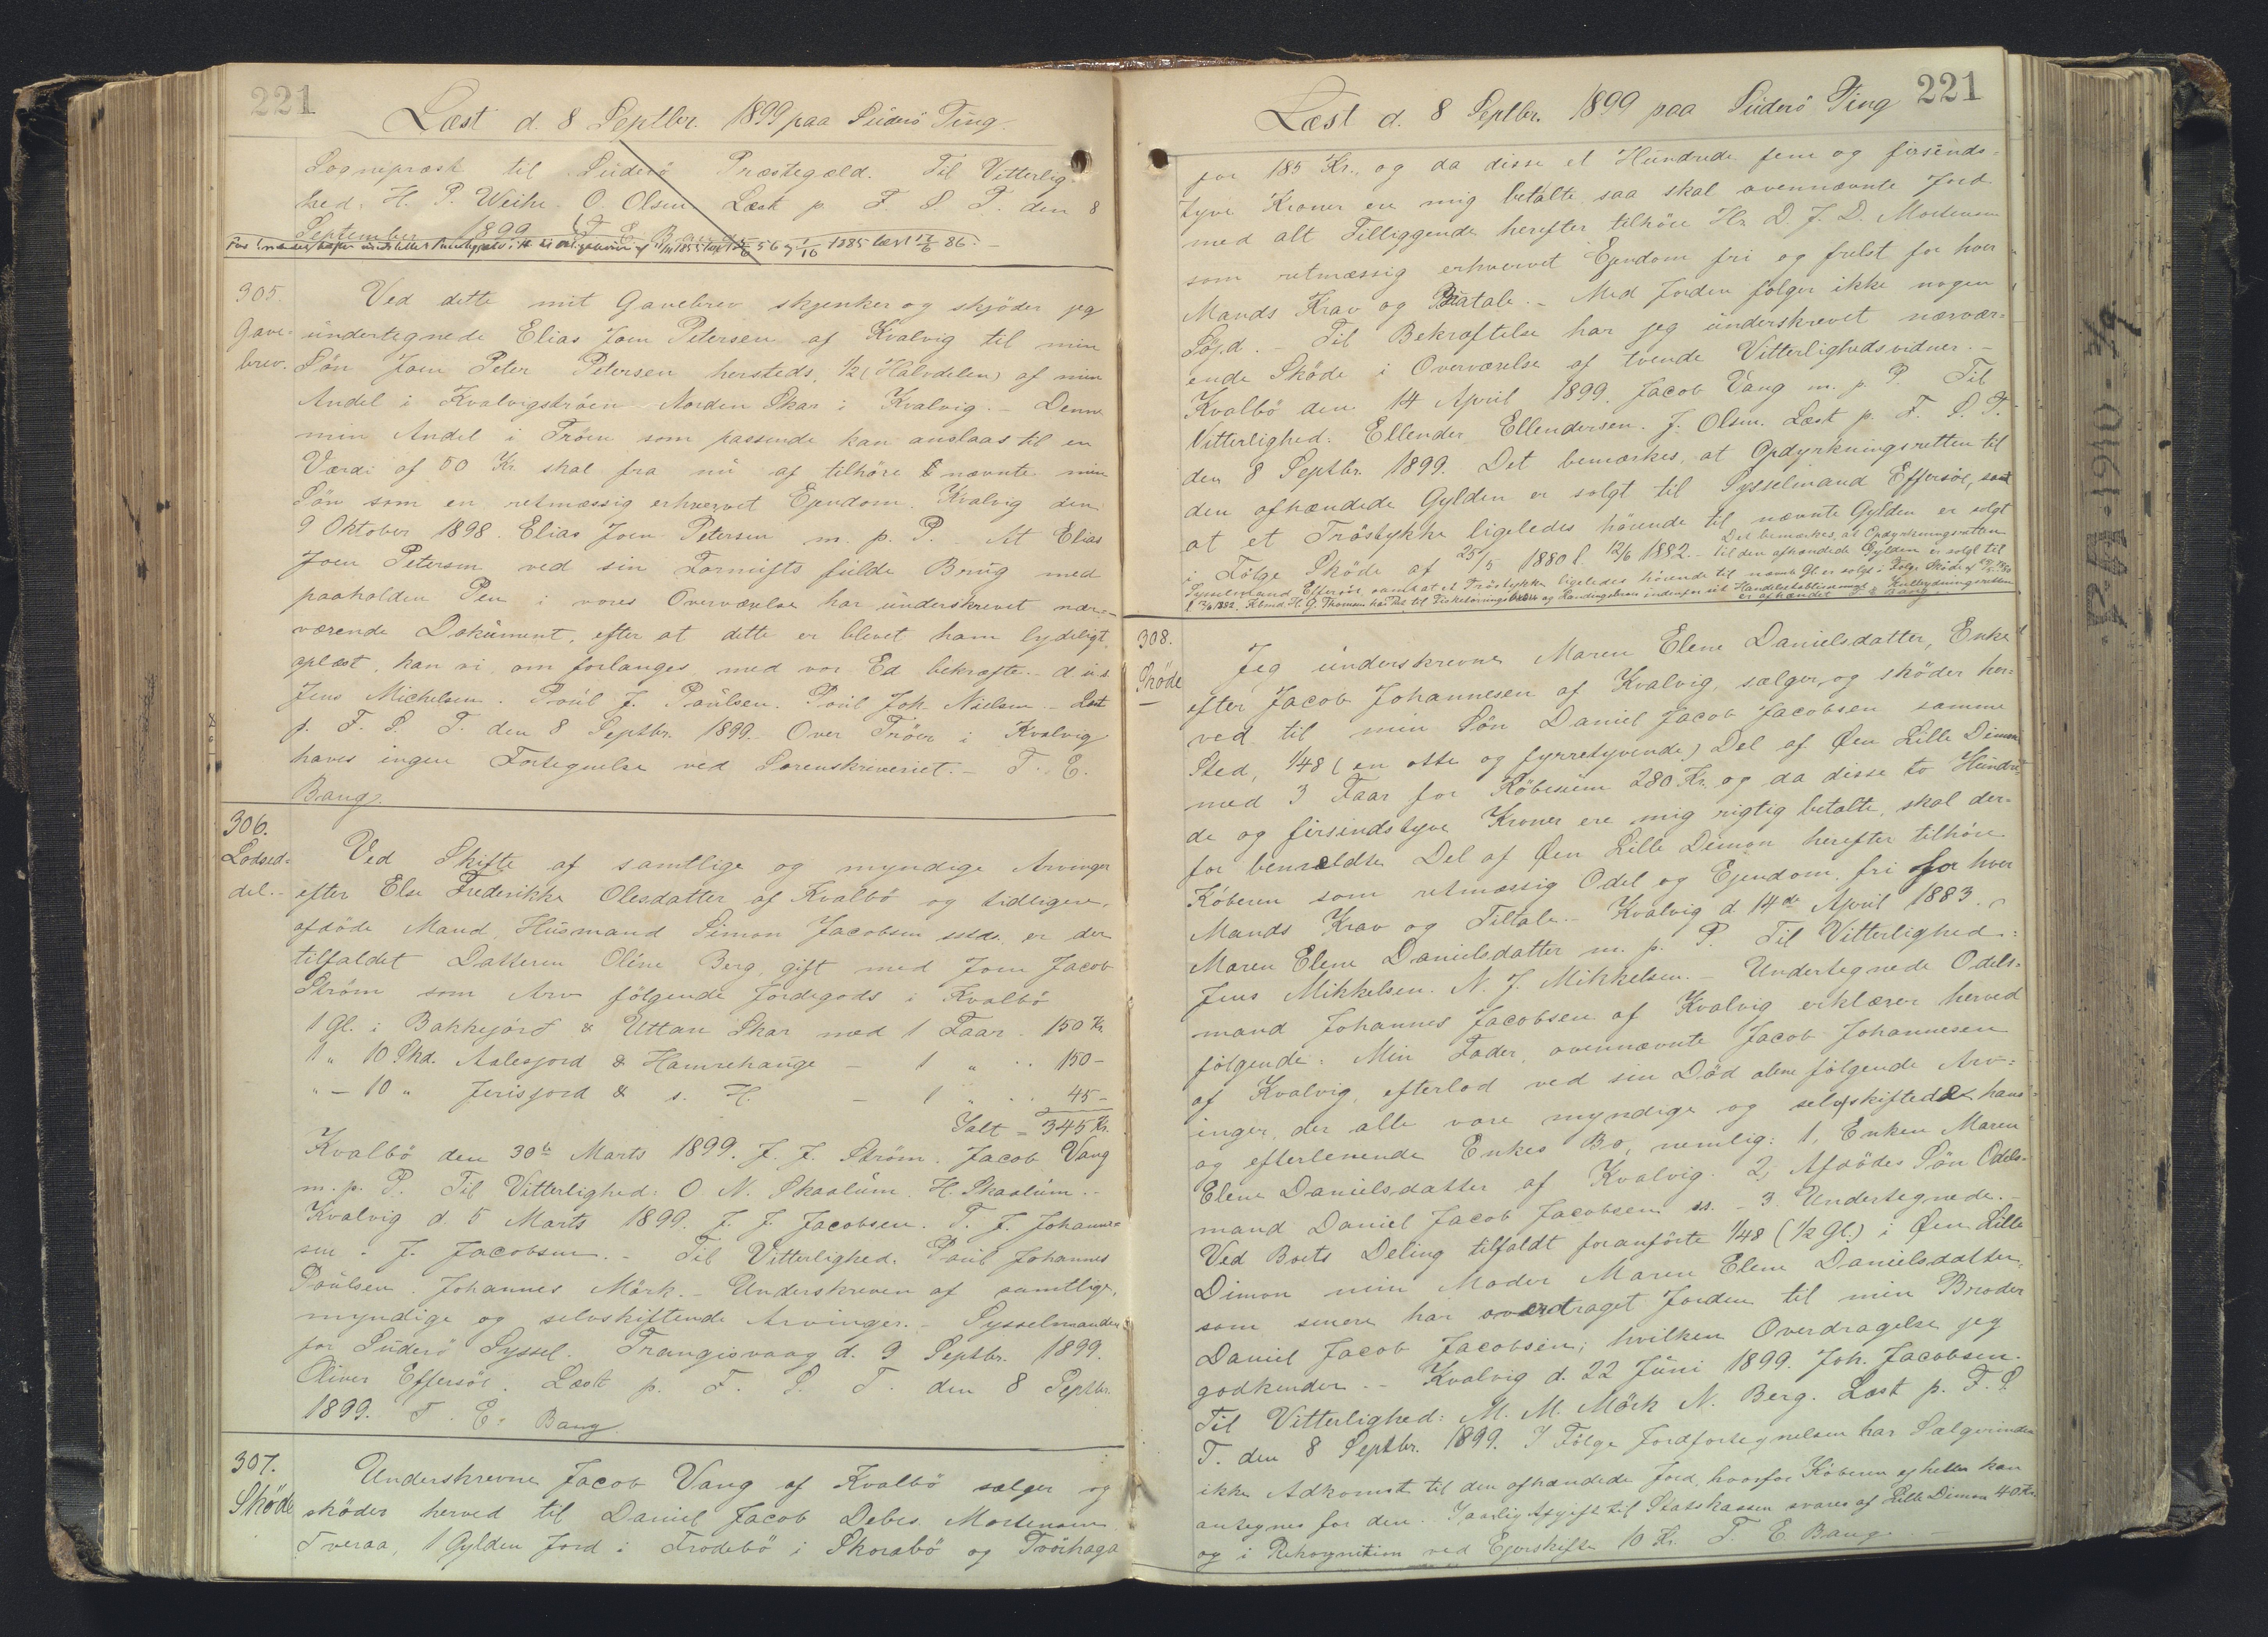 221
Læst d. 8 Septbr. 1899 paa Süderö Ting.
Sognepræst til Süderö Præstegæld. Til Vitterlig-
hed. H. P. Weihe. O. Olsen Læst p. F. S. T. den 8
September 1899
305.
Gave-
brev.
Ved dette mit Gavebrev skjenker og skjöder jeg
undertegnede Elias Joen Petersen af Kvalvig til min
Sön Joen Peter Petersen hersteds, 1/2 (Halvdelen) af min
Andel i Kvalvigströen Norden Skar i Kvalvig. - Denne
min Andel i Tröen som passende kan anslaas til en
Værdi af 50 Kr skal fra nu af tilhöre nævnte min
Sön som en retmæssig erhvervet Ejendom. Kvalvig den
9 Oktober 1898. Elias Joen Petersen m. p. P. - At Elias
Joen Petersen ved sin Fornufts fulde Brug med
paaholden Pen i vores Overværelse har underskrevet nær-
værende Dokument, efter at dette er blevet ham lydeligt
oplæst, kan vi, om forlanges, med vor Ed bekræfte. - d. u. s.
Jens Michelsen. Poul J. Paulsen. Poul Joh. Nielsen. - Læst
p. F. S. T. den 8 Septbr. 1899. Over Tröer i Kvalvig
haves ingen Fortegnelse ved Sorenskriveriet. - T. E.
Bang.
306.
Lodsed-
del. -
Ved Skifte af samtlige og myndige Arvinger
efter Else Frederikke Olesdatter af Kvalbö og tidligere
afdöde Mand, Husmand Simon Jacobsen sstds. er der
tilfaldet Datteren Oline Berg, gift med Joen Jacob
Ström som Arv fölgende Jordegods i Kvalbö
1 Gl. i Bakkejörd & Uttan Skar med 1 Faar - 150 Kr
1 " 10 Skd. Aalesjord & Hamrehauge - 1 " . . 150 -
" - 10 " Jerisjord & s. H. - 1 " . . 45 -
Ialt = 345 Kr.
Kvalbö den 30te Marts 1899. J. J. Ström. Jacob Vang
m. p. P. Til Vitterlighed: O. N. Skaalum. H. Skaalum. -
Kvalvig d. 5 Marts 1899. J. J. Jacobsen. T. J. Johanne-
sen. J. Jacobsen. - Til Vitterlighed. Poul Johannes
Poulsen. Johannes Mörk. - Underskreven af samtlige,
myndige og selvskiftende Arvinger. - Sysselmanden
for Süderö Syssel. Trangisvaag d. 9 Septbr. 1899.
Oliver Effersöe. Læst p. F. S. T. den 8 Septbr.
1899. T. E. Bang
307.
Sköde
Underskrevne Jacob Vang af Kvalbö sælger og
sköder herved til Daniel Jacob Debes Mortensen
Tveraa, 1 Gylden Jord i Frodebö i Skorabö og Tröihaga
221
Læst d. 8 Septbr. 1899 paa Süderö Ting
for 185 Kr., og da disse et Hundrede fem og firsinds-
tyve Kroner ere mig betalte, saa skal ovennævnte Jord
med alt Tilliggende herefter tilhöre Hr. D. J. D. Mortensen
som retmæssig erhvervet Ejendom fri og frelst for hver
Mands Krav og Paatale. - Med Jorden fölger ikke nogen
Söjd. - Til Bekræftelse har jeg underskrevet nærvær-
ende Sköde i Overværelse af tvende Vitterlighedsvidner. -
Kvalbö den 14 April 1899. Jacob Vang m. p. P. Til
Vitterlighed: Ellender Ellendersen. J. Olsen. Læst p. F. S. T.
den 8 Septbr. 1899. Det bemærkes, at Opdyrkningsretten til
den afhændede Gylden er solgt til Sysselmand Effersöe, samt
at et Tröstykke ligeledes hörende til nævnte Gylden er solgt
i Fölge Sköde af 25/5 1880 l. 12/6 1882. - Det bemærkes, at Opdyrkningsretten
til den afhændede Gylden er solgt til
Sysselmand Effersöe, samt at et Tröstykke ligeledes hörende til nævnte Gl. er solgt i Fölge Sköde af
308.
Sköde
Jeg underskrevne Maren Elene Danielsdatter, Enke
efter Jacob Johannesen af Kvalvig, sælger og sköder her-
ved til min Sön Daniel Jacob Jacobsen samme
Sted, 1/48 (en otte og fyrretyvende) Del af Øen Lille Dimon
med 3 Faar for Köbesum 280 Kr. og da disse to Hundre-
de og firsindstyve Kroner ere mig rigtig betalte, skal der-
for benmeldte Del af Øen Lille Dimon herefter tilhöre
Köberen som retmæssig Odel og Ejendom, fri for hver
Mands Krav og Tiltale. - Kvalvig d. 14de April 1883.
Maren Elene Danielsdatter m. p. P. Til Vitterlighed:
Jens Mikkelsen. N. J. Mikkelsen. - Undertegnede Odels-
mand Johannes Jacobsen af Kvalvig erklærer herved
fölgende: Min Fader, ovennævnte Jacob Johannesen
af Kvalvig, efterlod ved sin Död alene fölgende Arv-
inger, der alle vare myndige og selvskiftede hans
og efterlevende Enkes Bo, nemlig: 1, Enken Maren
Elene Danielsdatter af Kvalvig. 2, Afdödes Sön Odels-
mand Daniel Jacob Jacobsen ss. - 3. Undertegnede. -
Ved Boets Deling tilfaldt foranförte 1/48 (1/2 Gl.) i Øen Lille
Dimon min Moder Maren Elene Danielsdatter,
som senere har overdraget Jorden til min Broder
Daniel Jacob Jacobsen; hvilken Overdragelse jeg
godkender. - Kvalvig d. 22 Juni 1899. Joh. Jacobsen.
Til Vitterlighed: M. M. Mörk N. Berg. Læst p. F. S.
T. den 8 Septbr. 1899. I Fölge Jordfortegnelsen har Sælgerinden
ikke Adkomst til den afhændede Jord, hvorfor Köberen ej heller kan
antegnes for den. Jaarlig Afgift til Statskassen svares af Lille Dimon 40 Kr.
og i Rekognition ved Ejerskifte 10 Kr. T. E. Bang.